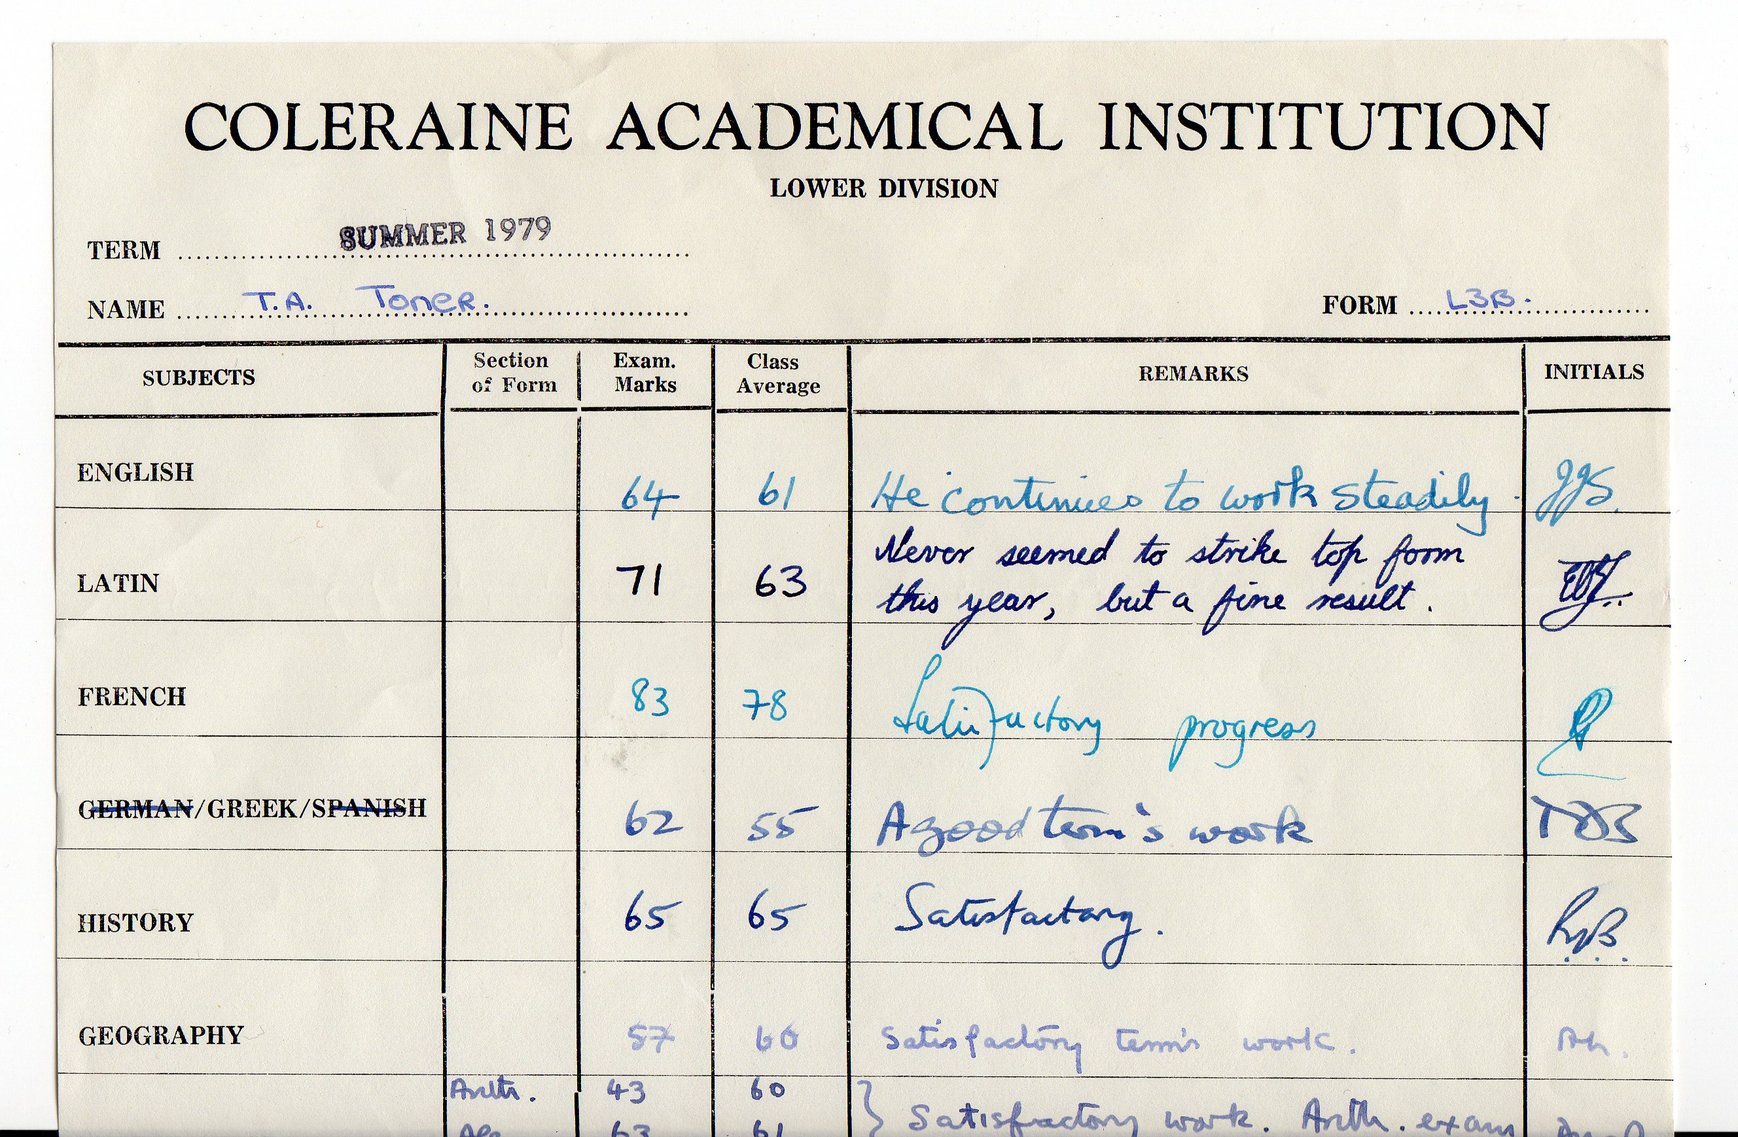 COLERAINE ACADEMICAL INSTITUTION
LOWER DIVISION
TERM SUMMER 1979
NAME T.A. Toner. FORM L3B.
SUBJECTS Section of Form Exam. Marks Class Average REMARKS INITIALS
ENGLISH 64 61 He continues to work steadily. JJS.
LATIN 71 63 Never seemed to strike top form
this year, but a fine result.
FRENCH 83 78 Satisfactory progress
GERMAN/GREEK/SPANISH 62 55 A good term's work
HISTORY 65 65 Satisfactory.
GEOGRAPHY 57 60 Satisfactory term's work.
Arith. 43 60
Satisfactory work. Arith. exam
63 61